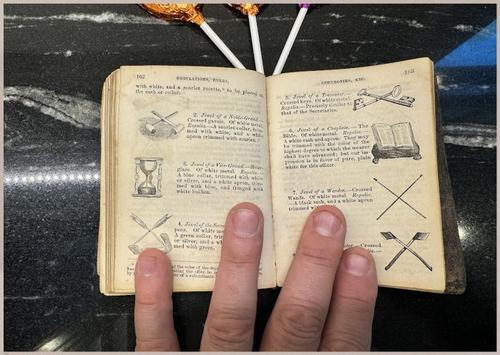 162 REGULATIONS, FORMS,
with white, and a scarlet rosette, to be placed on
the sash or collar.
2. Jewel of a Noble-Grand.—
Crossed gavels. Of white metal.
Regalia.—A scarlet collar, trim-
med with white, and a white
apron trimmed with scarlet.
3. Jewel of a Vice-Grand.—Hour-
glass. Of white metal. Regalia.—
A blue collar, trimmed with white
or silver, and a white apron, trim-
med with blue, and fringed with
white bullion.
4. Jewel of the
pens. Of white
A green collar, trim
or silver, and a
med with green.
CEREMONIES, ETC. 163
5. Jewel of a Treasurer.—
Crossed keys. Of white metal.
Regalia.—Precisely similar to
that of the Secretaries.
6. Jewel of a Chaplain.—The
Bible. Of white metal. Regalia.—
A white sash and apron. They may
be trimmed with the color of the
highest degree to which the wearer
shall have advanced; but our im-
pression is in favor of pure, plain
white for this officer.
7. Jewel of a Warden.—Crossed
Wands. Of white metal. Regalia.
—A black sash, and a white apron
trimmed
Crossed